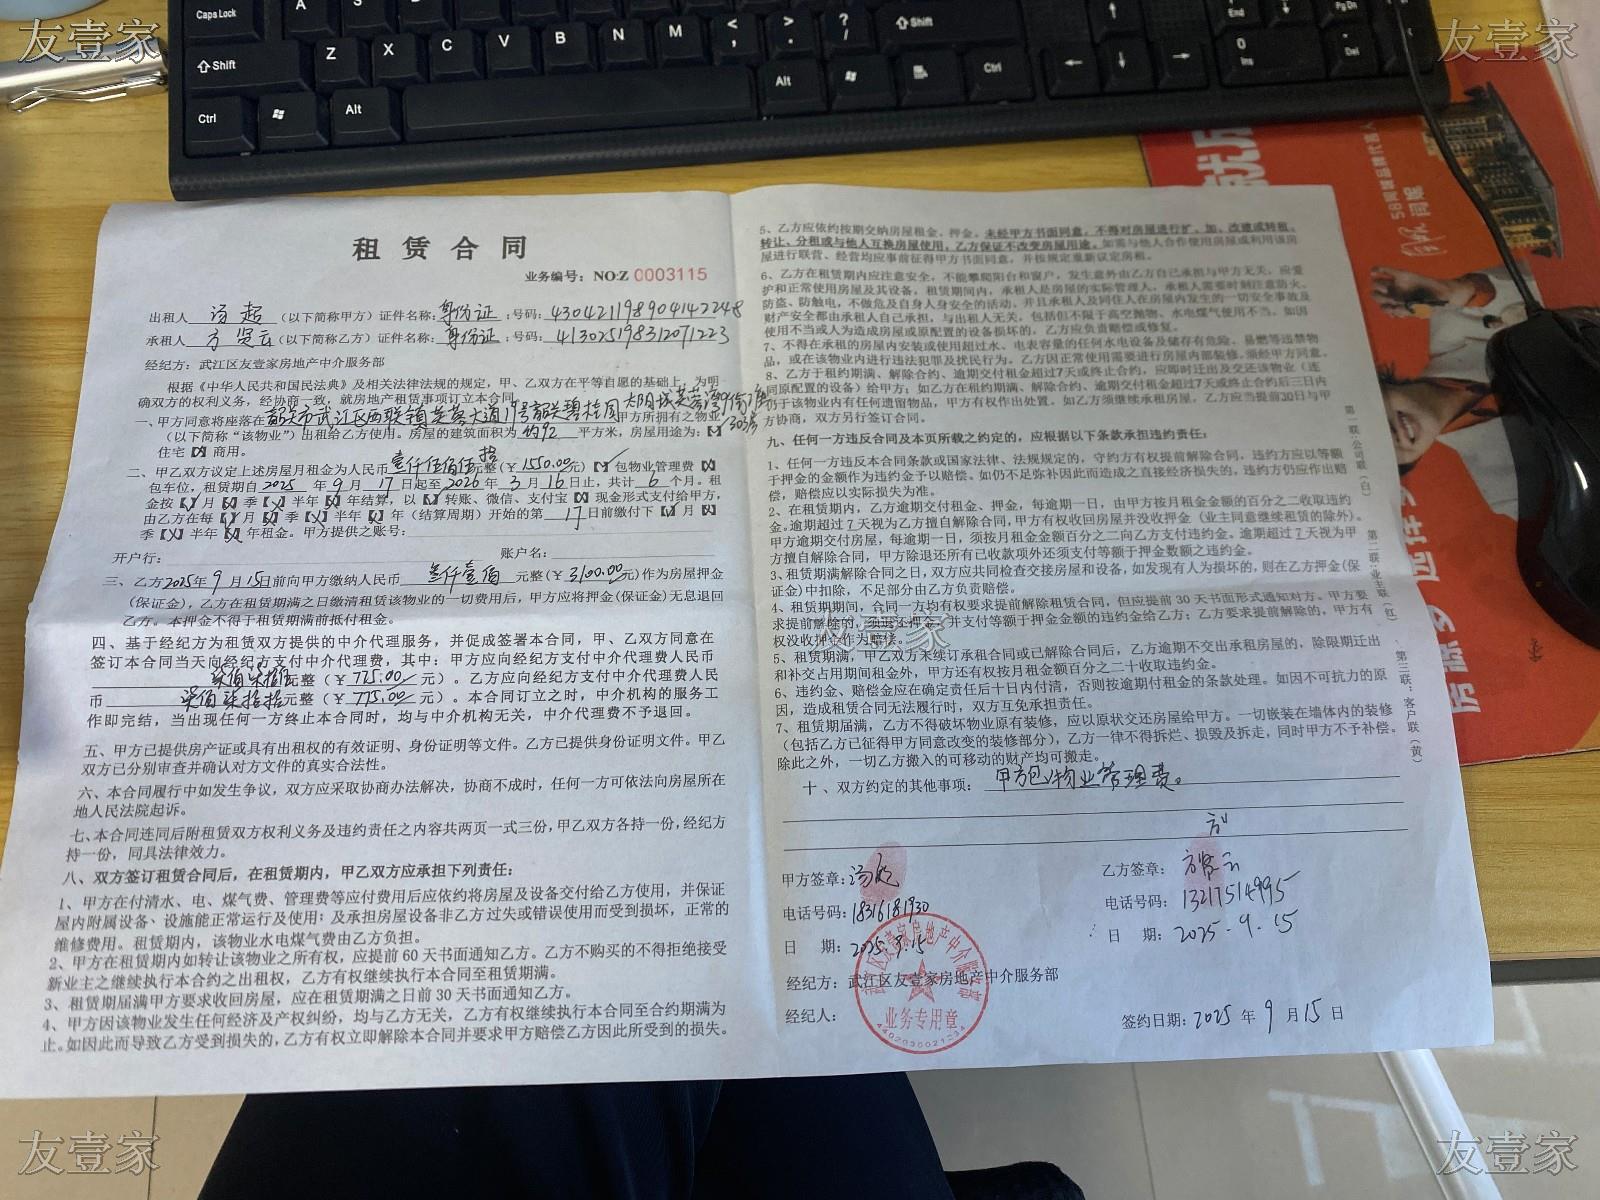 友壹家
友壹家
Caps Lock
A
S
D
Shift
Z
X
C
V
B
N
M
Shift
End
Pg Dn
Ctrl
Alt
Alt
Ctrl
0
Ins
Del
58同城品牌代言人
租赁合同
业务编号：NO:Z 0003115
出租人 汤超（以下简称甲方）证件名称：身份证；号码：430421198904142248
承租人 方贤云（以下简称乙方）证件名称：身份证；号码：413025198312071223
经纪方：武江区友壹家房地产中介服务部
根据《中华人民共和国民法典》及相关法律法规的规定，甲、乙双方在平等自愿的基础上，为明
确双方的权利义务，经协商一致，就房地产租赁事项订立本合同。
一、甲方同意将座落在韶关市武江区西联镇芙蓉大道19号韶关碧桂园太阳城芙蓉湾 303房 甲方所拥有之物业
（以下简称“该物业”）出租给乙方使用。房屋的建筑面积为 约92 平方米，房屋用途为：【】
住宅【】商用。
二、甲乙双方议定上述房屋月租金为人民币 壹仟伍佰伍拾元整（￥1550.00元）【】包物业管理费【】
包车位，租赁期自 2025 年 9 月 17 日起至 2026 年 3 月 16 日止，共计 6 个月。租
金按【】月【】季【】半年【】年结算，以【】转账、微信、支付宝【】现金形式支付给甲方，
由乙方在每【】月【】季【】半年【】年（结算周期）开始的第 17 日前缴付下【】月【】
季【】半年【】年租金。甲方提供之账号：
开户行： 账户名：
三、乙方2025年9月15日前向甲方缴纳人民币 叁仟壹佰 元整（￥3100.00元)作为房屋押金
(保证金)，乙方在租赁期满之日缴清租赁该物业的一切费用后，甲方应将押金(保证金)无息退回
乙方。本押金不得于租赁期满前抵付租金。
四、基于经纪方为租赁双方提供的中介代理服务，并促成签署本合同，甲、乙双方同意在
签订本合同当天向经纪方支付中介代理费，其中：甲方应向经纪方支付中介代理费人民币
元整（￥775.00元）。乙方应向经纪方支付中介代理费人民
币 元整（￥775.00元）。本合同订立之时，中介机构的服务工
作即完结，当出现任何一方终止本合同时，均与中介机构无关，中介代理费不予退回。
五、甲方已提供房产证或具有出租权的有效证明、身份证明等文件。乙方已提供身份证明文件。甲乙
双方已分别审查并确认对方文件的真实合法性。
六、本合同履行中如发生争议，双方应采取协商办法解决，协商不成时，任何一方可依法向房屋所在
地人民法院起诉。
七、本合同连同后附租赁双方权利义务及违约责任之内容共两页一式三份，甲乙双方各持一份，经纪方
持一份，同具法律效力。
八、双方签订租赁合同后，在租赁期内，甲乙双方应承担下列责任：
1、甲方在付清水、电、煤气费、管理费等应付费用后应依约将房屋及设备交付给乙方使用，并保证
屋内附属设备、设施能正常运行及使用；及承担房屋设备非乙方过失或错误使用而受到损坏，正常的
维修费用。租赁期内，该物业水电煤气费由乙方负担。
2、甲方在租赁期内如转让该物业之所有权，应提前60天书面通知乙方。乙方不购买的不得拒绝接受
新业主之继续执行本合约之出租权，乙方有权继续执行本合同至租赁期满。
3、租赁期届满甲方要求收回房屋，应在租赁期满之日前30天书面通知乙方。
4、甲方因该物业发生任何经济及产权纠纷，均与乙方无关，乙方有权继续执行本合同至合约期满为
止。如因此而导致乙方受到损失的，乙方有权立即解除本合同并要求甲方赔偿乙方因此所受到的损失。
5、乙方应依约按期交纳房屋租金、押金。未经甲方书面同意，不得对房屋进行扩、加、改建或转租、
转让、分租或与他人互换房屋使用，乙方保证不改变房屋用途。如需与他人合作使用房屋或利用该房
屋进行联营、经营均应事前征得甲方书面同意，并按规定重新议定房租。
6、乙方在租赁期内应注意安全，不能攀爬阳台和窗户，发生意外由乙方自己承担与甲方无关，应爱
护和正常使用房屋及其设备，租赁期间内，承租人是房屋的实际管理人，承租人需要时刻注意防火、
防盗、防触电，不做危及自身人身安全的活动，并且承租人及同住人在房屋内发生的一切安全事故及
财产安全都由承租人自己承担，与出租人无关，包括但不限于高空抛物、水电煤气使用不当。如因
使用不当或人为造成房屋或原配置的设备损坏的，乙方应负责赔偿或修复。
7、不得在承租的房屋内安装或使用超过水、电表容量的任何水电设备及储存有危险、易燃等违禁物
品，或在该物业内进行违法犯罪及扰民行为。乙方因正常使用需要进行房屋内部装修，须经甲方同意。
8、乙方于租约期满、解除合约、逾期交付租金超过7天或终止合约，应即时迁出及交还该物业（连
同原配置的设备）给甲方；如乙方在租约期满、解除合约、逾期交付租金超过7天或终止合约后三日内
仍于该物业内有任何遗留物品，甲方有权作出处置。如乙方须继续承租房屋，乙方应当提前30日与甲
方协商，双方另行签订合同。
九、任何一方违反合同及本页所载之约定的，应根据以下条款承担违约责任：
1、任何一方违反本合同条款或国家法律、法规规定的，守约方有权提前解除合同，违约方应以等额
于押金的金额作为违约金予以赔偿。如仍不足弥补因此而造成之直接经济损失的，违约方仍应作出赔
偿，赔偿应以实际损失为准。
2、在租赁期内，乙方逾期交付租金、押金，每逾期一日，由甲方按月租金金额的百分之二收取违约
金。逾期超过7天视为乙方擅自解除合同，甲方有权收回房屋并没收押金（业主同意继续租赁的除外）。
甲方逾期交付房屋，每逾期一日，须按月租金金额的百分之二向乙方支付违约金。逾期超过7天视为甲
方擅自解除合同，甲方除退还所有已收款项外还须支付等额于押金数额之违约金。
3、租赁期满解除合同之日，双方应共同检查交接房屋和设备，如发现有人为损坏的，则在乙方押金(保
证金)中扣除，不足部分由乙方负责赔偿。
4、租赁期期间，合同一方均有权要求提前解除租赁合同，但应提前30天书面形式通知对方。甲方要
求提前解除的，须退还押金，并支付等额于押金金额的违约金给乙方；乙方要求提前解除的，甲方有
权没收押金作为赔偿。
友壹家
5、租赁期满，甲乙双方未续订承租合同或已解除合同后，乙方逾期不交出承租房屋的，除限期迁出
和补交占用期间租金外，甲方还有权按月租金额百分之二十收取违约金。
6、违约金、赔偿金应在确定责任后十日内付清，否则按逾期付租金的条款处理。如因不可抗力的原
因，造成租赁合同无法履行时，双方互免承担责任。
7、租赁期届满，乙方不得破坏物业原有装修，应以原状交还房屋给甲方。一切嵌装在墙体内的装修
（包括乙方已征得甲方同意改变的装修部分），乙方一律不得拆烂、损毁及拆走，同时甲方不予补偿。
除此之外，一切乙方搬入的可移动的财产均可搬走。
十、双方约定的其他事项： 甲方包物业管理费。
甲方签章：汤超
电话号码：18316181930
日 期：2025.9.15
乙方签章：方贤云
电话号码：13217514995
日 期：2025.9.15
经纪方：武江区友壹家房地产中介服务部
经纪人：
签约日期：2025 年 9 月 15 日
武江区友壹家房地产中介服务部
业务专用章
4402030021234
第一联：公司联（白）
第二联：业主联（红）
第三联：客户联（黄）
友壹家
友壹家